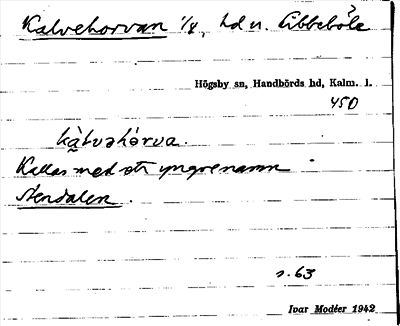 Kalvehorvan 1/4, hd u. Aibbeböle
Högsby sn, Handbörds hd, Kalm. l.
450
kàlvəhórva.
Kallas med ett yngre namn
Stendalen.
s. 63
Ivar Modéer 1942